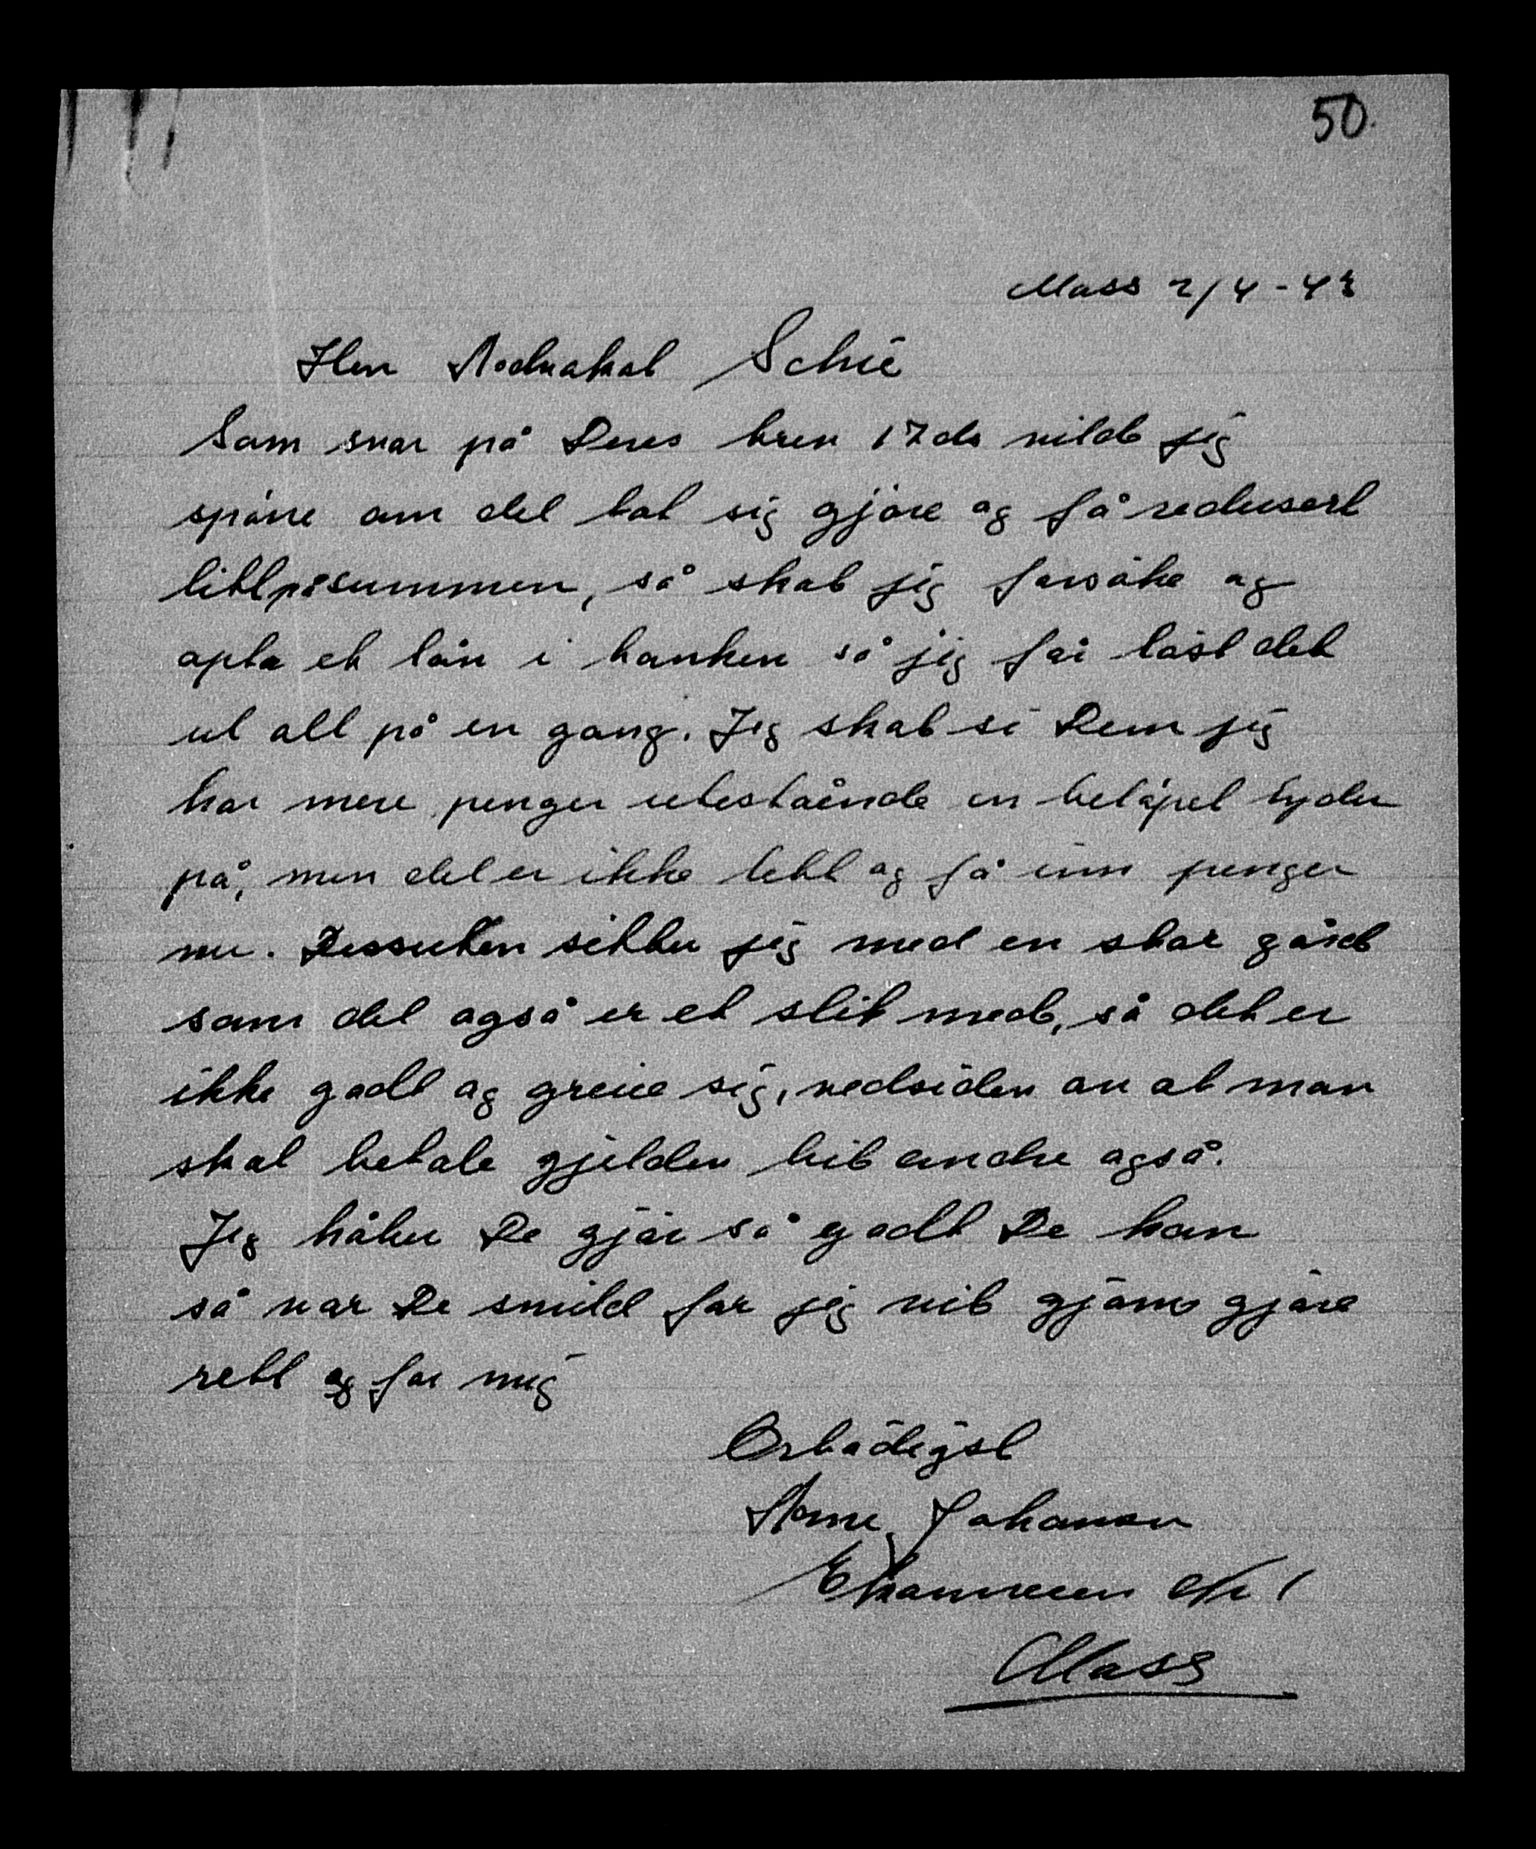 50.
Moss 2/4-43
Herr Advokat Schie
Som svar på Deres brev 17ds vilde jeg
spørre om det lot sig gjøre og få redusert
litt på summen, så skal jeg forsøke og
opta et lån i banken så jeg får løst det
ut alt på en gang. Jeg skal si Dem jeg
har mere penger utestående en beløpet lyder
på, men det er ikke lett og få inn penger
nu. Dessuten sitter jeg med en stor gård
som det også er et slit med, så det er
ikke godt og greie sig, vedsiden av at man
skal betale gjelden til andre også.
Jeg håber De gjør så godt De kan
så var De snild for jeg vil gjerne gjøre
rett og for mig
Erbødigst
Arne Johansen
Ekanveien Nr 1
Moss